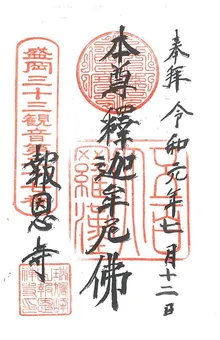 奉拝 令和元年七月十二日
本尊釋迦牟尼佛
報恩寺
盛岡三十三観音第
五百羅漢